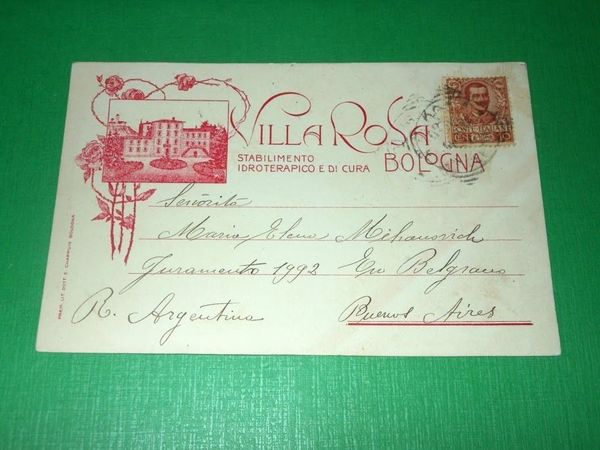 VILLA ROSA
STABILIMENTO
IDROTERAPICO E DI CURA
BOLOGNA
POSTE ITALIANE
Señorita
Maria Elena Mihanovich
Juramento 1992 En Belgrano
R. Argentina Buenos Aires
PREM. LIT. DOTT. E. CHAPPUIS BOLOGNA